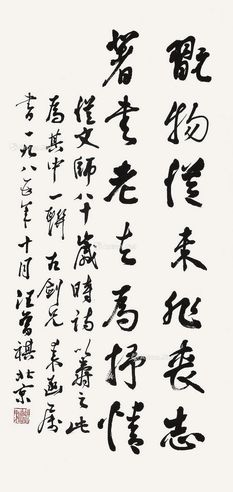 翫物從來非喪志
著書老去為抒情
從文師八十歲時詩以壽之此
為其中一聯 古劍兄來函屬
書 一九八年十月 汪曾祺 北京